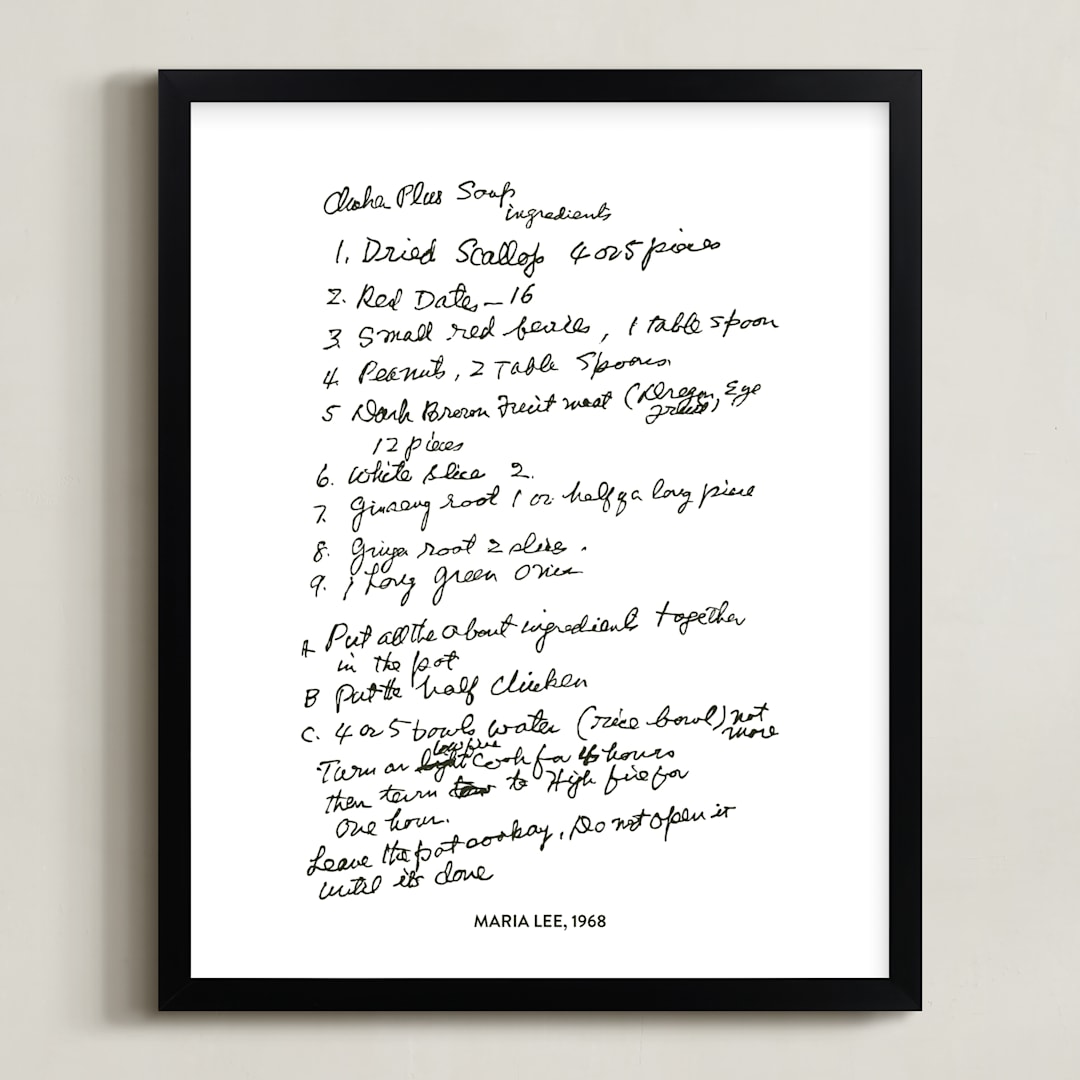 Aloha Plus Soup
ingredients
1. Dried Scallop 4 or 5 pieces
2. Red Dates – 16
3 Small red berries, 1 table spoon
4. Peanuts, 2 Table Spoons.
5 Dark Brown Fruit meat (Dragon, Eye
fruit)
12 pieces
6. White slice 2.
7. Ginseng root 1 or half of a long piece
8. Ginger root 2 slices.
9. 1 Long green onion
A Put all the about ingredients together
in the pot
B Put the half Chicken
C. 4 or 5 bowls water (rice bowl) not
more
Turn on low fire Cook for 4 hours
then turn to High fire for
one hour.
Leave the pot, Do not open it
until its done
MARIA LEE, 1968